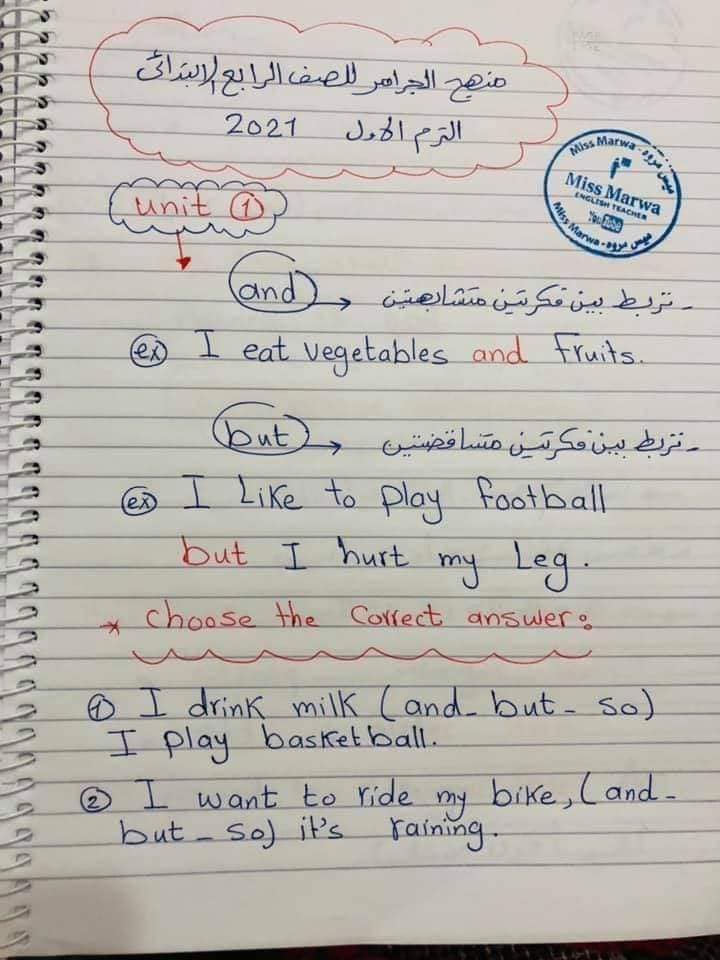 منهج الجرامر للصف الرابع الابتدائى
الترم الاول 2021
Miss Marwa - ميس مروه
Miss Marwa
ENGLISH TEACHER
YouTube
Miss Marwa - ميس مروه
unit ①
and → - تربط بين فكرتين متشابهتين
ex I eat vegetables and fruits.
but → - تربط بين فكرتين متناقضتين
ex I Like to play football
but I hurt my Leg.
* choose the correct answer:
① I drink milk (and - but - so)
I play basketball.
② I want to ride my bike, (and -
but - so) it's raining.